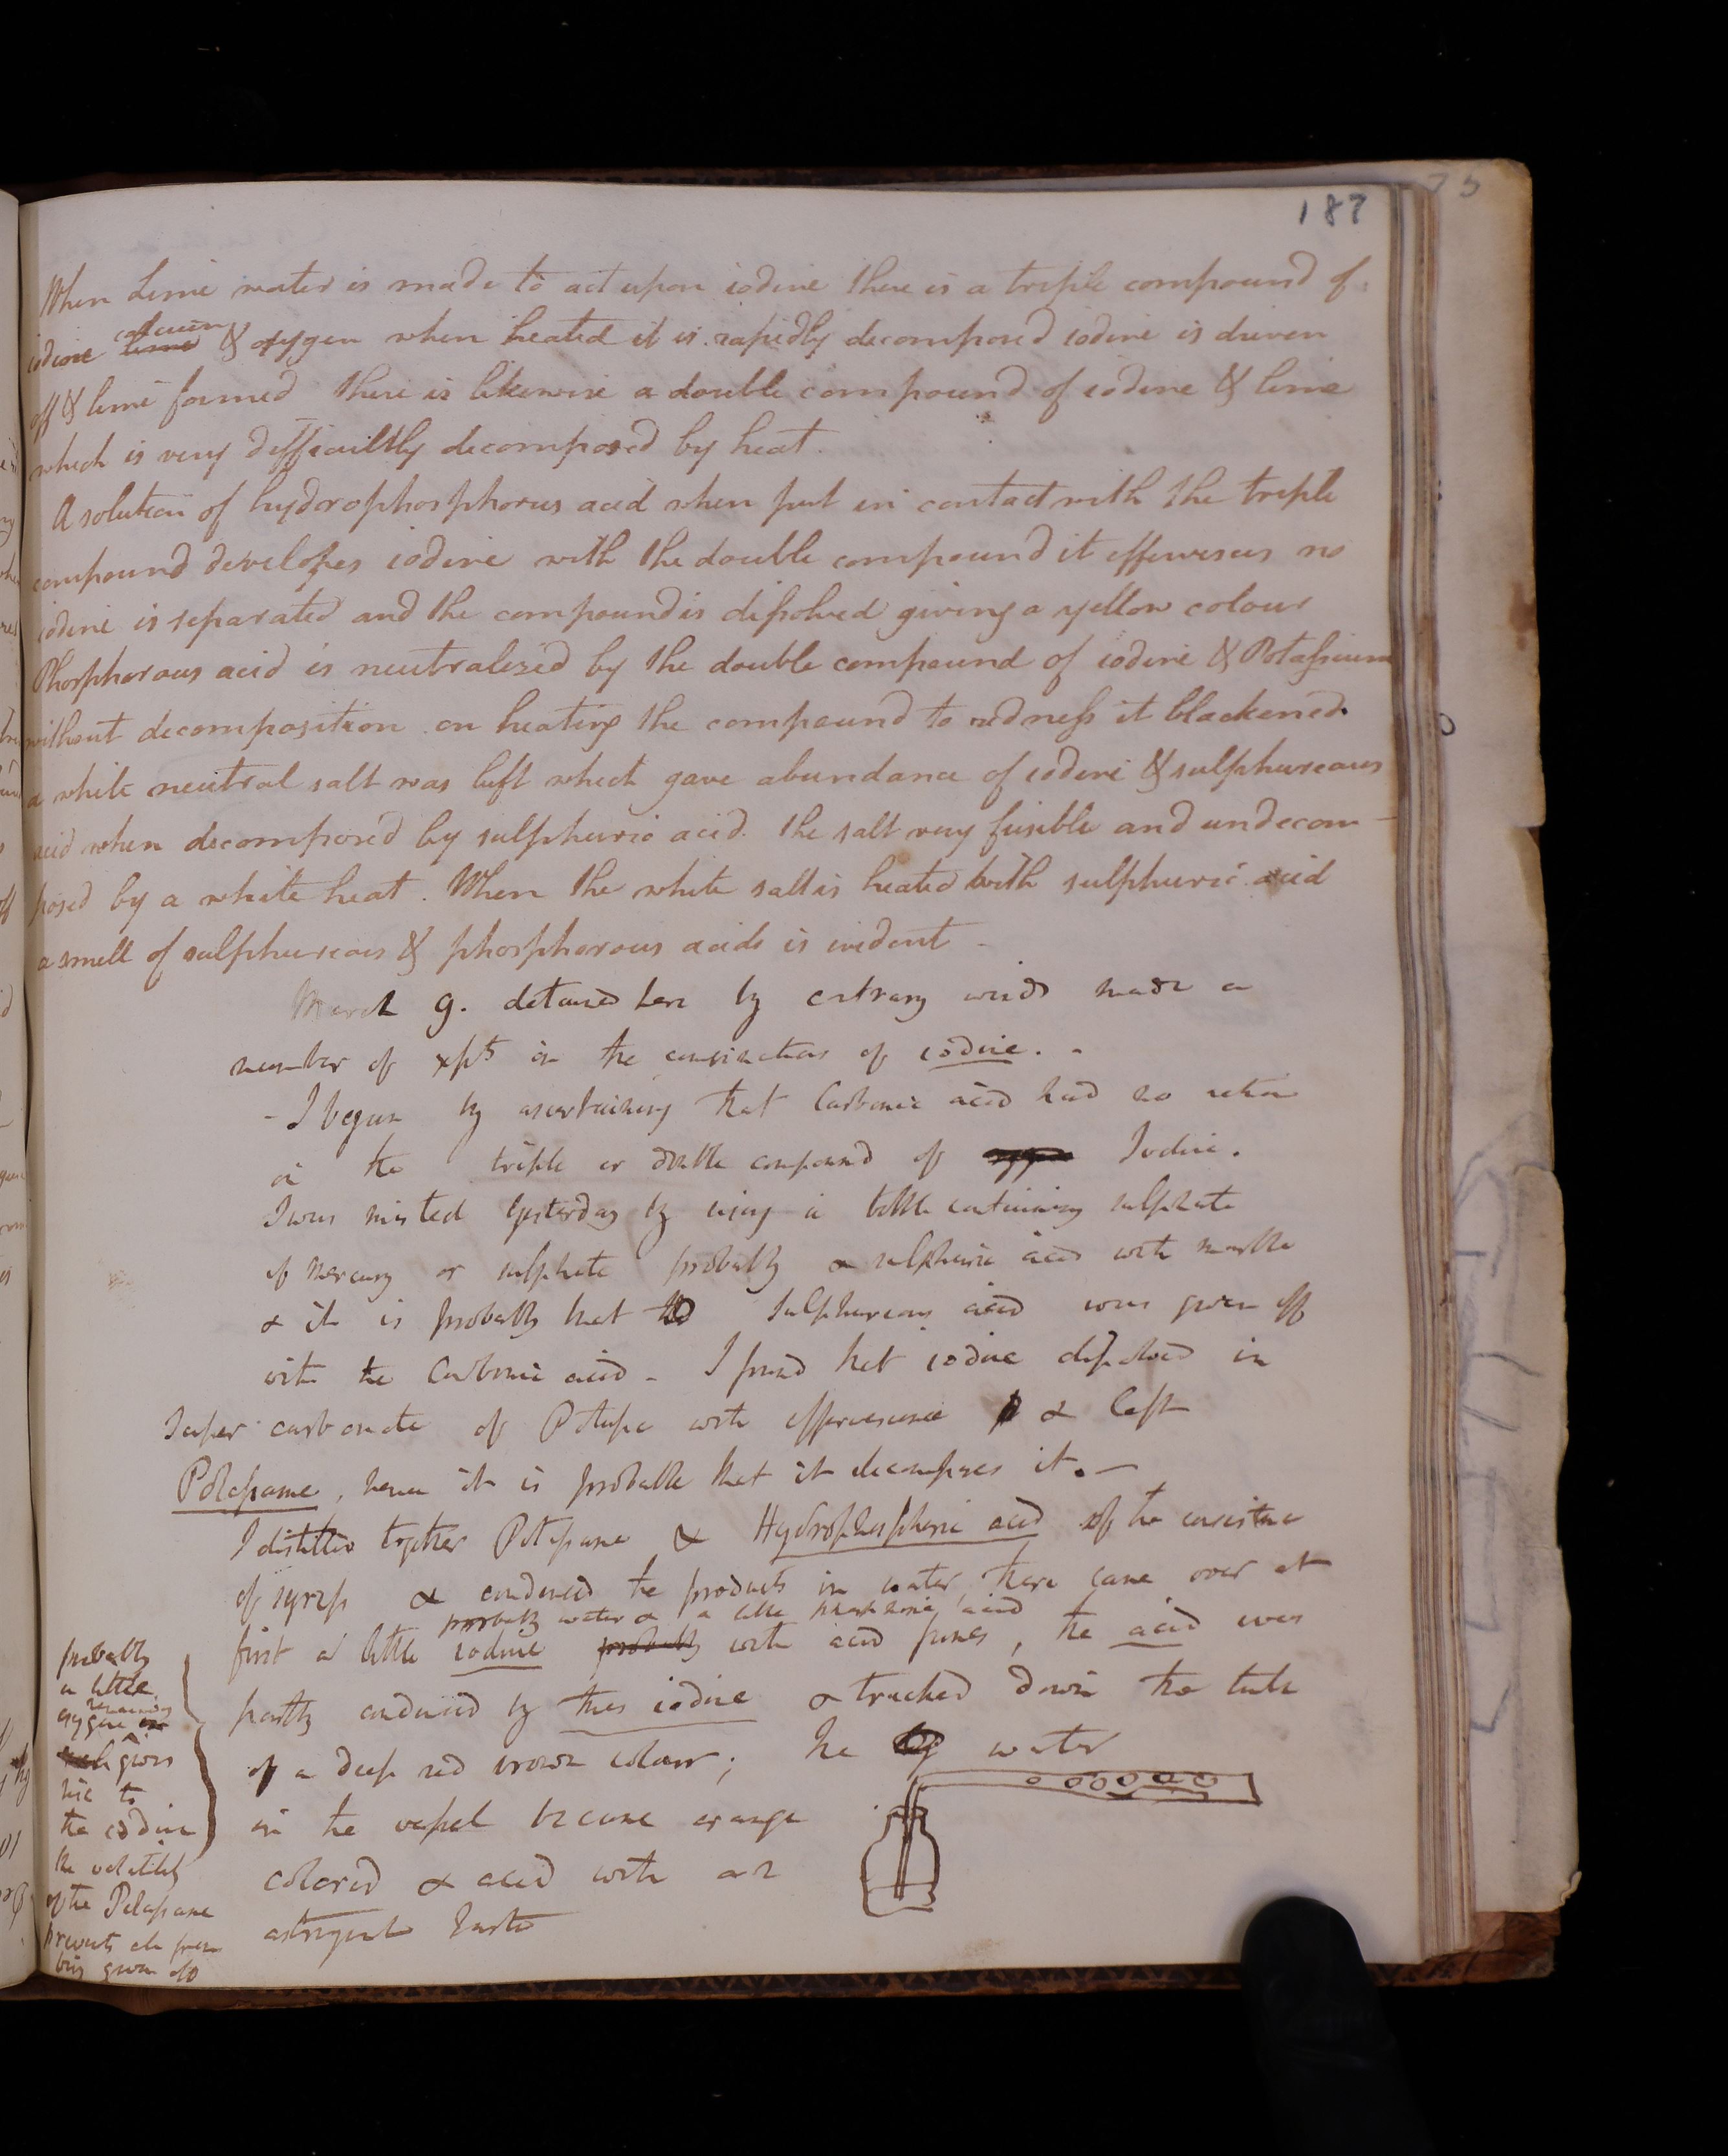 187
When Lime water is made to act upon iodine there is a triple compound of
iodine lime calcium & oxygen when heated it is rapidly decomposed iodine is driven
off & lime formed there is likewise a double compound of iodine & lime
which is very difficultly decomposed by heat.
A solution of hydrophosphorus acid when put in contact with the triple
compound developes iodine with the double compound it effervesces no
iodine is separated and the compound is dissolved giving a yellow colour
Phosphorous acid is neutralized by the double compound of iodine & Potassium
without decomposition on heating the compound to redness it blackened.
a white neutral salt was left which gave abundance of iodine & sulphureous
acid when decomposed by sulphuric acid. the salt very fusible and undecom-
posed by a white heat. When the white salt is heated with sulphuric acid
a smell of sulphureous & phosphorous acids is evident -
March 9. detained here by contrary winds made a
number of expts on the combinations of iodine. -
- I began by ascertaining that Carbonic acid had no action
on the triple or double compound of Iodine.
I was misled yesterday by using a bottle containing sulphate
of Mercury or sulphite probably & sulphuric acid with marble
& it is probably that sulphureous acid was given off
with the Carbonic acid - I found that iodine dissolved in
super carbonate of Potassa with effervescence & left
Potassame, hence it is probable that it decomposes it. -
I distilled together Potassame & Hydrophosphoric acid of the consistence
of syrup & condensed the products in water there came over at
probably water & a little phosphoric acid
first a little iodine probably with acid fumes, the acid was
partly condensed by this iodine & trickled down the tube
of a deep red brown colour; the water
in the vessel became orange
colored & acid with an
astringent taste
probably
a little
remaining
oxygene in
gives
rise to
the iodine
the volatility
of the Potassame
prevents it from
being given off